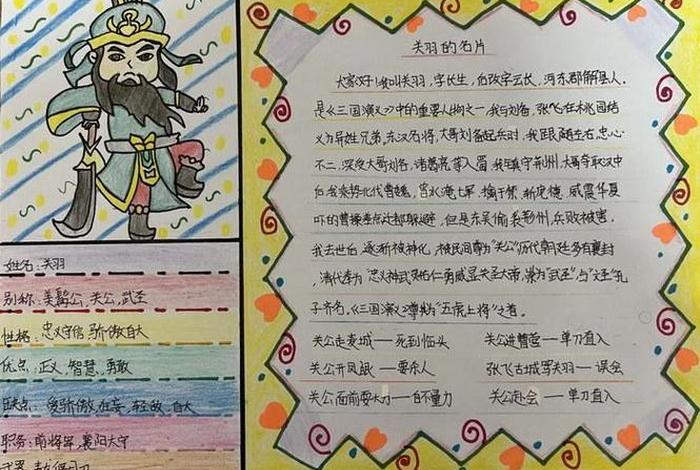 姓名：关羽
别称：美髯公，关公，武圣
性格：忠义守信 骄傲自大
优点：正义，智慧，勇敢
缺点：爱骄傲，狂妄，轻敌，自大
职务：前将军，襄阳太守
关羽的名片
大家好！我叫关羽，字长生，后改字云长，河东郡解县人。
是《三国演义》中的重要人物之一，我与刘备，张飞在桃园结
义为异姓兄弟，东汉名将，大哥刘备起兵时，我跟随左右，忠心
不二，深受大哥刘备，诸葛亮等入蜀，我镇守荆州，大哥夺取汉中
后我乘势北伐曹魏，曾水淹七军，擒于禁，斩庞德，威震华夏
吓的曹操差点迁都躲避，但是东吴偷袭荆州，兵败被害，
我去世后，逐渐被神化，被民间尊为“关公”历代朝廷多有褒封
，清代奉为“忠义神武灵佑仁勇威显关圣大帝，崇为“武圣”与“文圣”孔
子齐名。《三国演义》尊为“五虎上将”之首。
关公走麦城——死到临头
关公进曹营——单刀直入
关公开凤眼——要杀人
张飞古城骂关羽——误会
关公面前耍大刀——自不量力
关公赴会——单刀直入